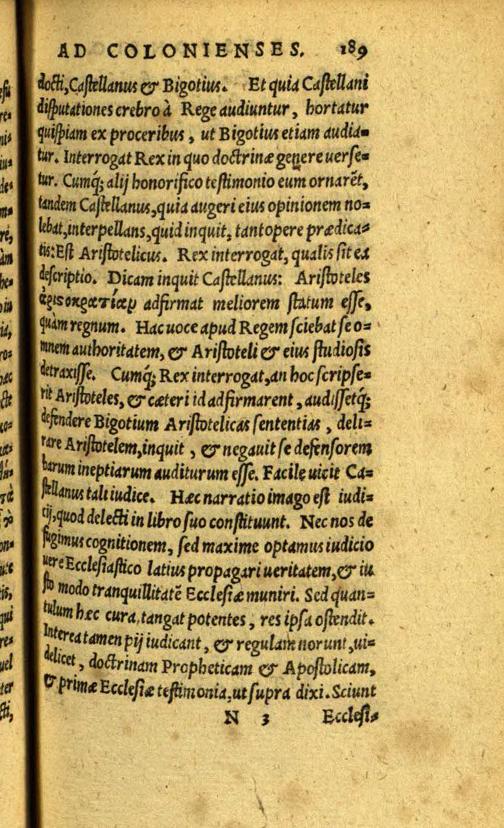 AD COLONIENSES. 189
docti, Castellanus & Bigotius. Et quia Castellani
disputationes crebro à Rege audiuntur, hortatur
quispiam ex proceribus, ut Bigotius etiam audia-
tur. Interrogat Rex in quo doctrinæ genere verse-
tur. Cumq; alij honorifico testimonio eum ornarēt,
tandem Castellanus, quia augeri eius opinionem no-
lebat, interpellans, quid inquit, tantopere prædica-
tis: Est Aristotelicus. Rex interrogat, qualis sit ea
descriptio. Dicam inquit Castellanus: Aristoteles
ἀριστοκρατίαμ adfirmat meliorem statum esse,
quàm regnum. Hac uoce apud Regem sciebat se o-
mnem authoritatem, & Aristoteli & eius studiosis
detraxisse. Cumq; Rex interrogat, an hoc scripse-
rit Aristoteles, & cæteri id adfirmarent, audissetq;
defendere Bigotium Aristotelicas sententias, deli-
rare Aristotelem, inquit, & negauit se defensorem
harum ineptiarum auditurum esse. Facile uicit Ca-
stellanus tali iudice. Hæc narratio imago est iudi-
cij, quod delecti in libro suo constituunt. Nec nos de
fugimus cognitionem, sed maxime optamus iudicio
uere Ecclesiastico latius propagari ueritatem, & iu
sto modo tranquillitatē Ecclesiæ muniri. Sed quan-
tulum hæc cura, tangat potentes, res ipsa ostendit.
Interea tamen pij iudicant, & regulam norunt, ui-
delicet, doctrinam Propheticam & Apostolicam,
& primæ Ecclesiæ testimonia, ut supra dixi. Sciunt
N 3 Ecclesi-